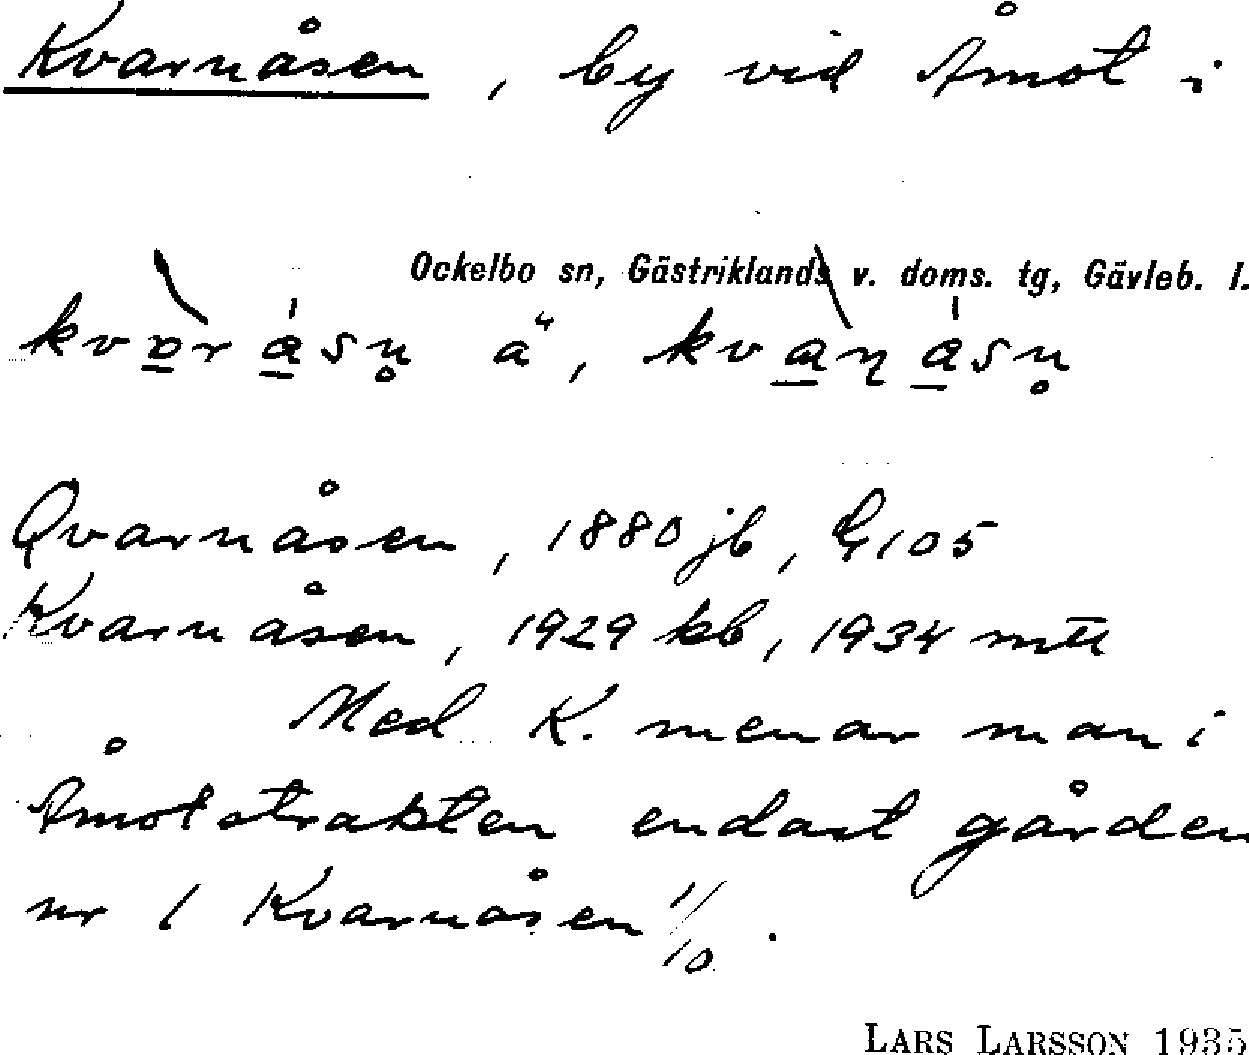 Kvarnåsen, by vid Åmot i
Ockelbo sn, Gästriklands v. doms. tg, Gävleb. l.
Qvarnåsen, 1880 jb, § 105
Kvarnåsen, 1929 kb, 1934 mtl
Med K. menar man i
Åmotstrakten endast gården
nr 1 Kvarnåsen 1/10.
LARS LARSSON 1935